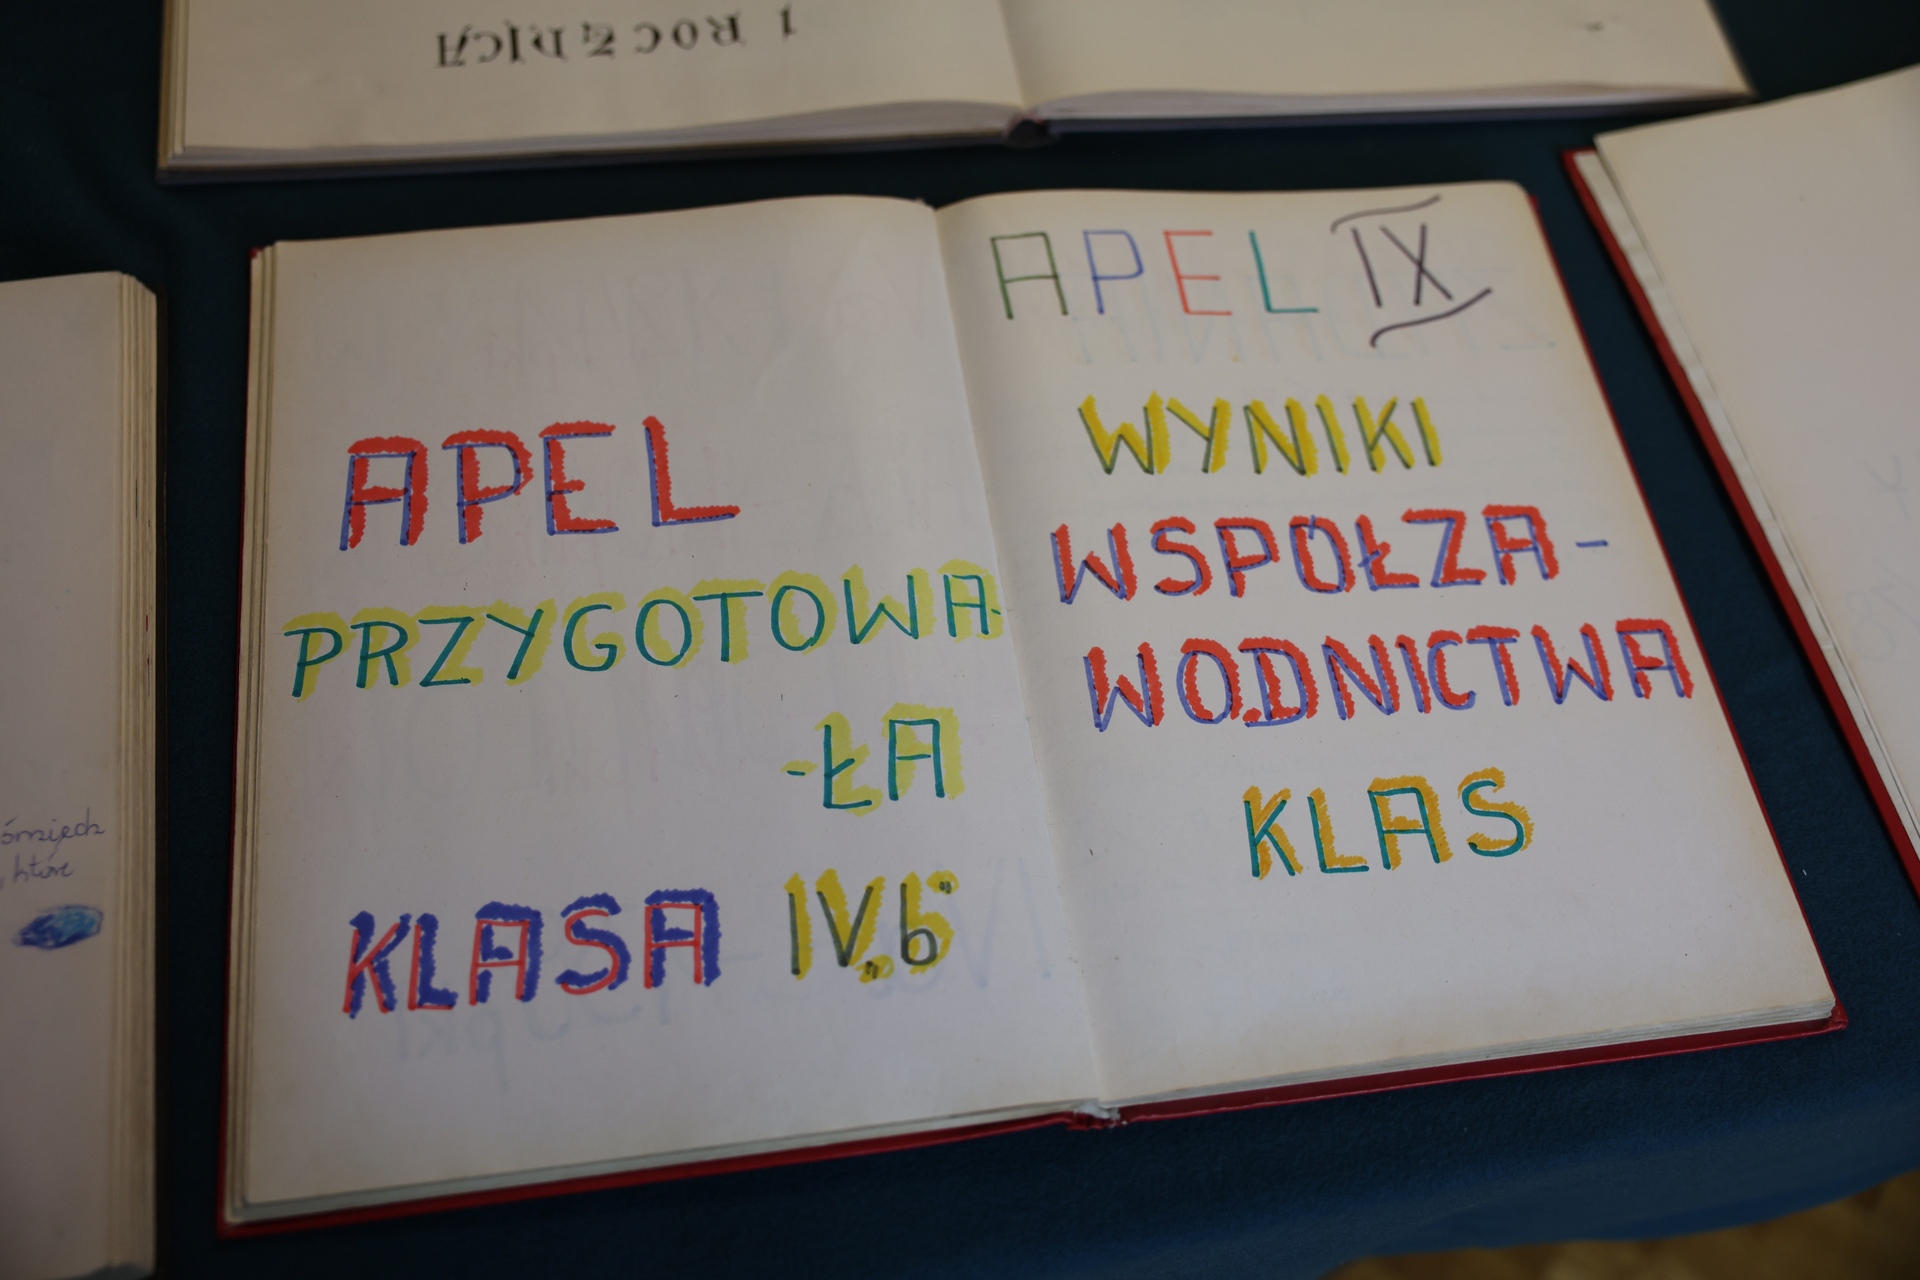 1 ROCZNICA
APEL
PRZYGOTOWA-
-ŁA
KLASA IV „b”
APEL IX
WYNIKI
WSPÓŁZA-
WODNICTWA
KLAS
, które